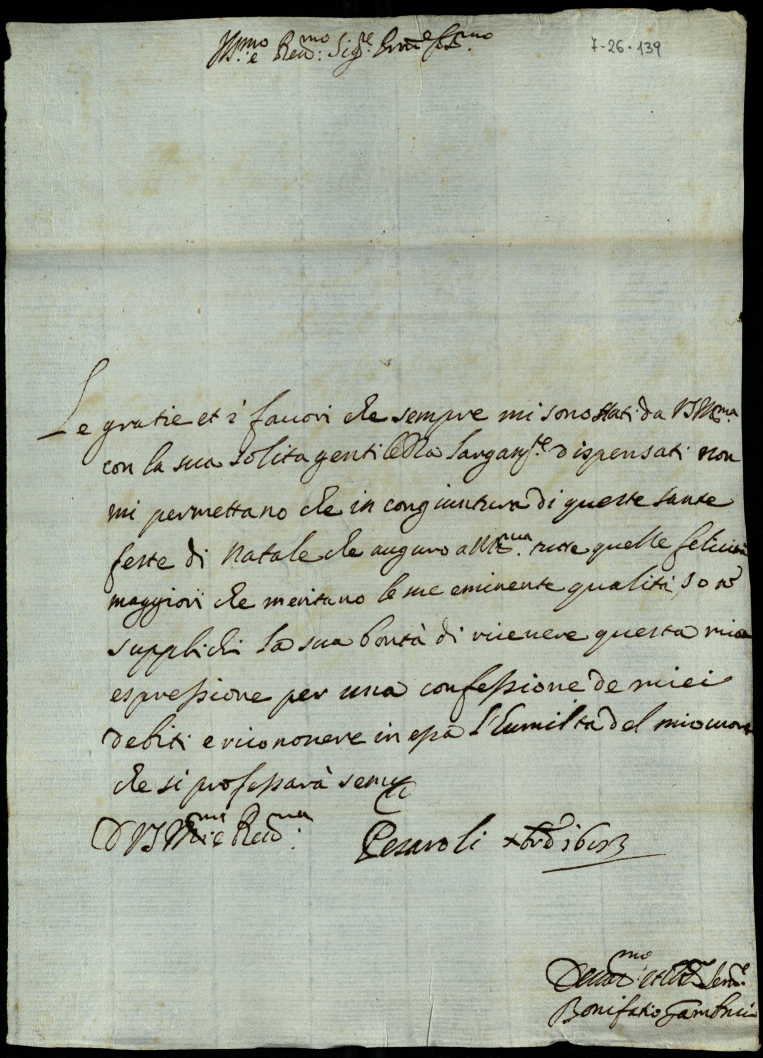 Ill.mo e Rev.mo Sig.re
7-26-139
Le gratie et i favori che sempre mi sono stati da V S Ill.ma
con la sua solita gentilezza dispensati non
mi permettano che in congiuntura di queste sante
feste di Natale che auguro a tutte quelle felicità
maggiori che meritano le sue eminente qualità, Io nō
supplichi la sua bontà di ricevere questa mia
espressione per una confessione de miei
debiti e riconoscere in essa l'humiltà del mio cuore
che si professarà sempre
Di V S Ill.ma e Rev.ma Xbre
Devot.mo et Serv.e
Bonifatio